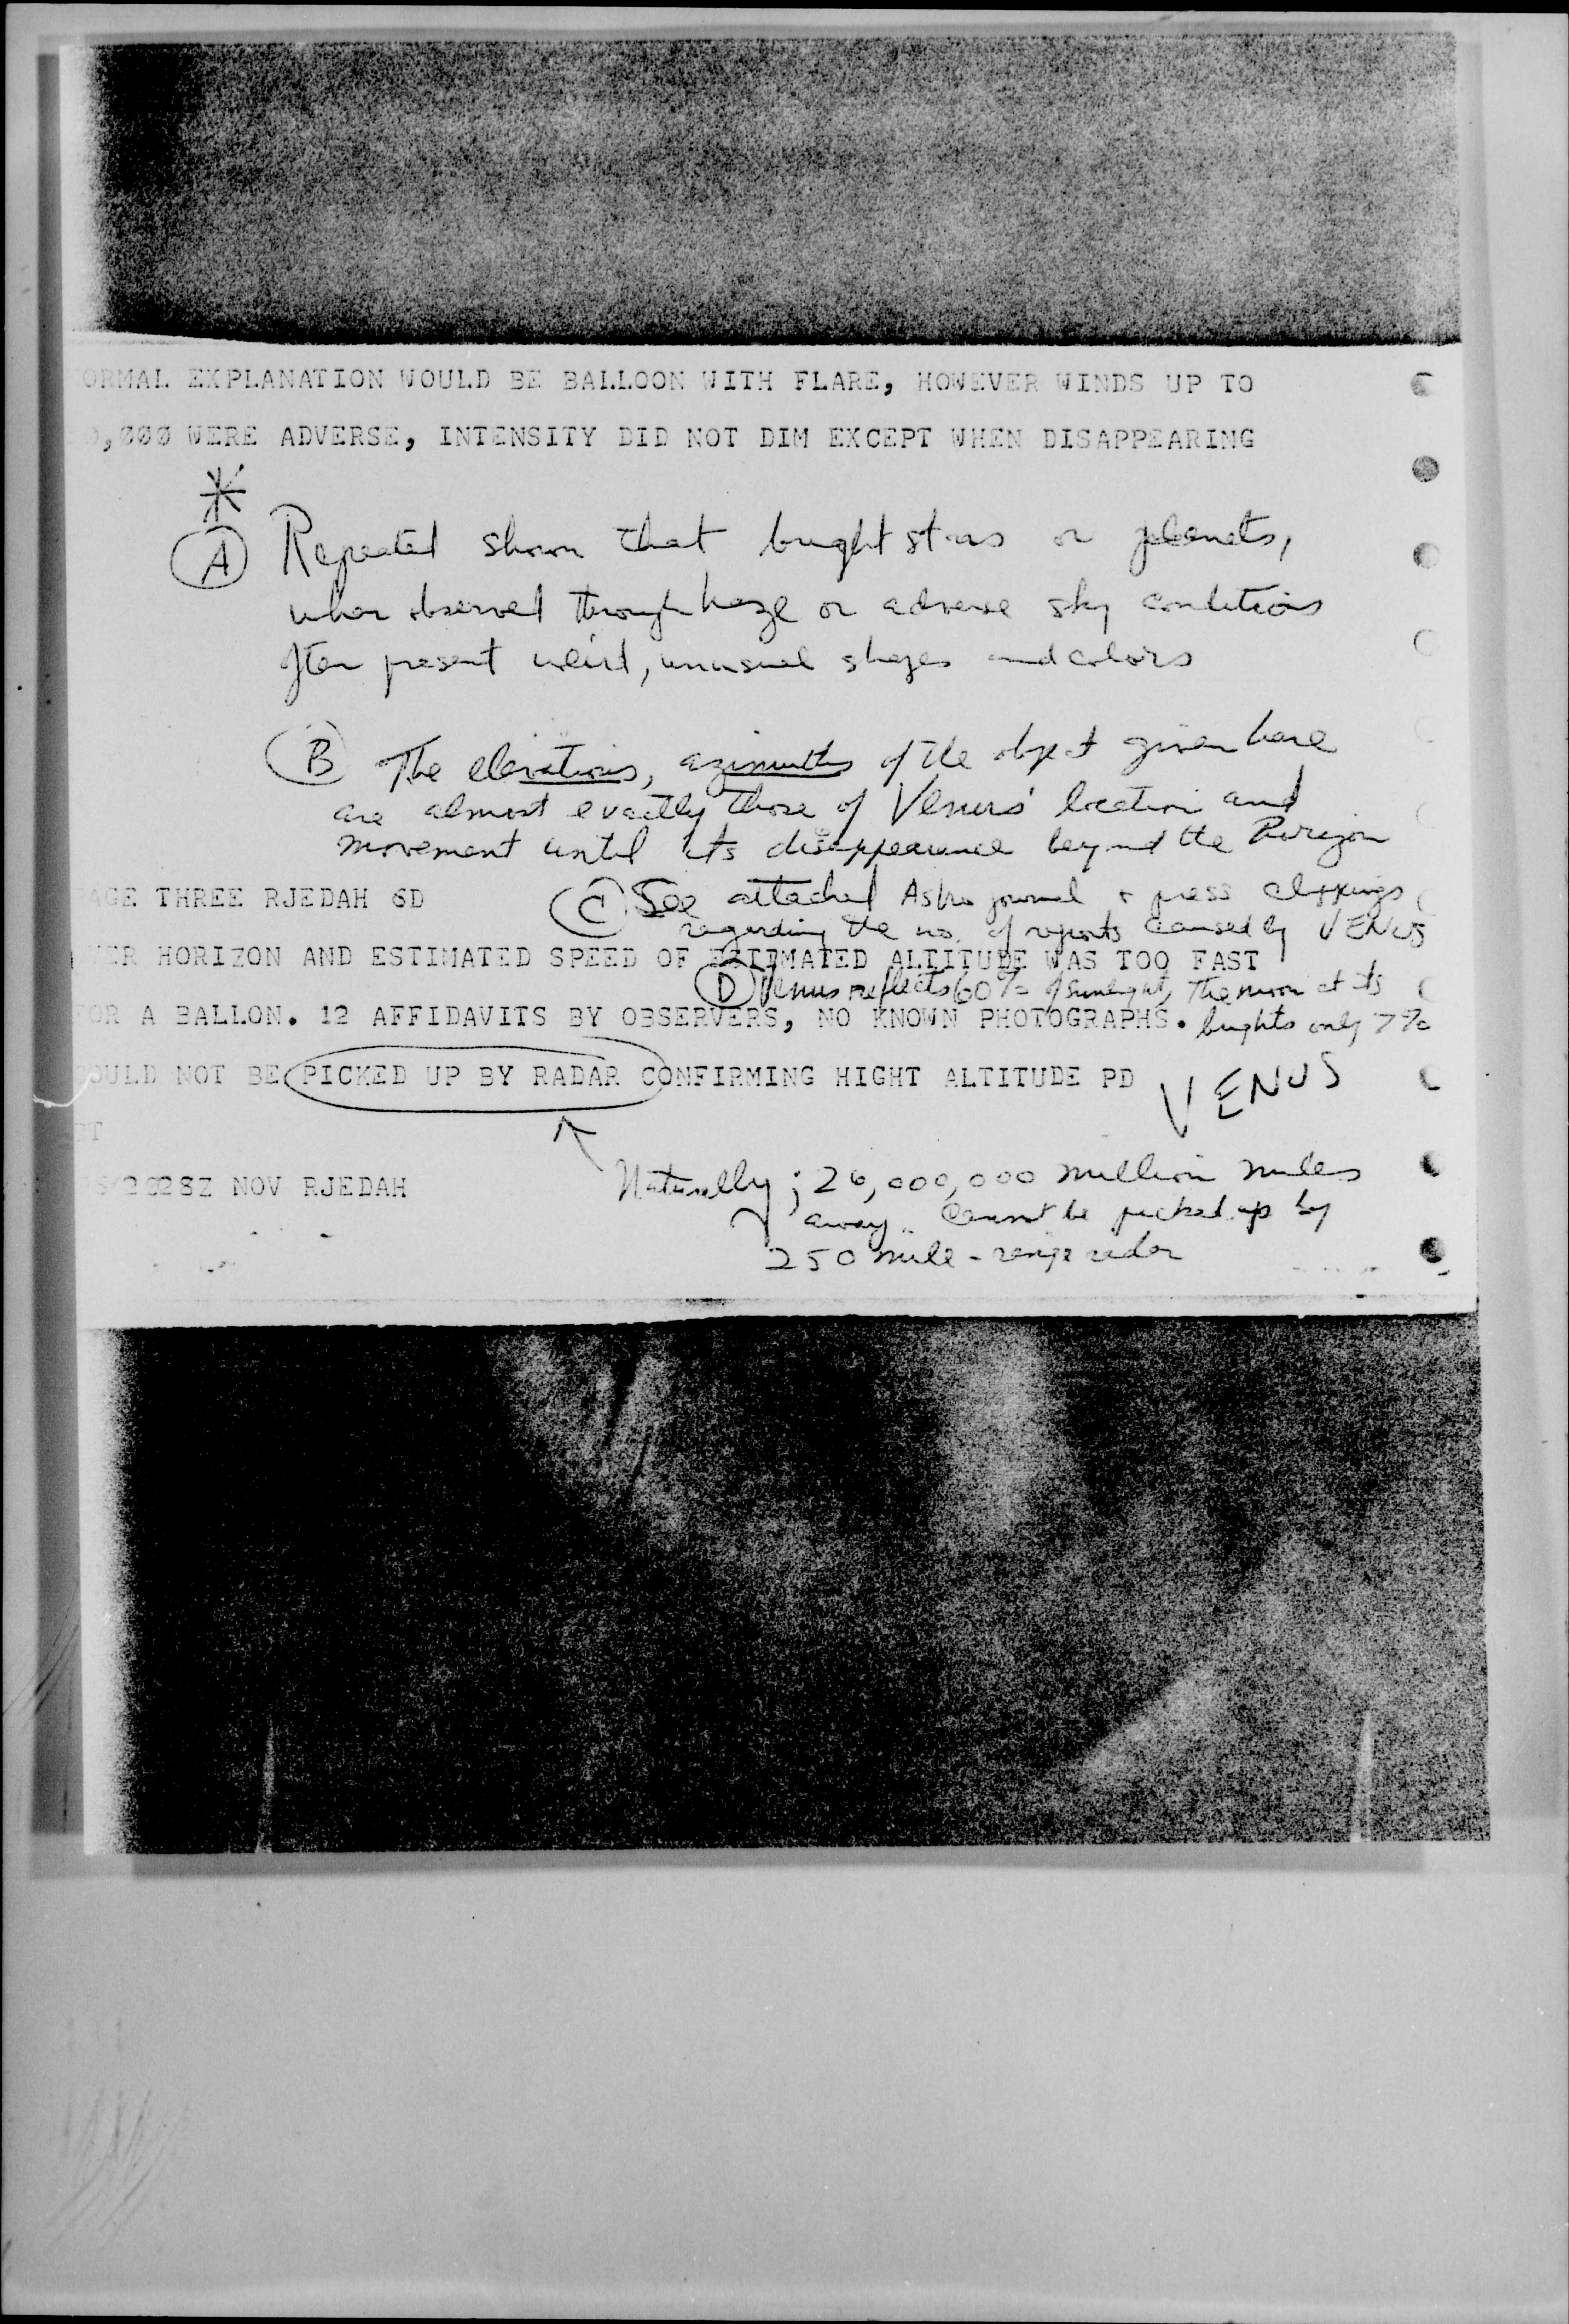 ORMAL EXPLANATION WOULD BE BALLOON WITH FLARE, HOWEVER WINDS UP TO
0,000 WERE ADVERSE, INTENSITY DID NOT DIM EXCEPT WHEN DISAPPEARING
*
A Repeated shown that bright stars or planets,
when observed through haze or adverse sky conditions
often present weird, unusual shapes and colors
B The elevations, azimuths of the object given here
are almost exactly those of Venus' location and
movement until its disappearance beyond the Horizon
AGE THREE RJEDAH 6D
C See attached Astro journal + press clippings
regarding the no. of reports caused by VENUS
VER HORIZON AND ESTIMATED SPEED OF ESTIMATED ALTITUDE WAS TOO FAST
D Venus reflects 60% of sunlight, The moon at its
OR A BALLON. 12 AFFIDAVITS BY OBSERVERS, NO KNOWN PHOTOGRAPHS.
brights only 7%
OULD NOT BE PICKED UP BY RADAR CONFIRMING HIGHT ALTITUDE PD
VENUS
T
Naturally; 26,000,000 million miles
2028Z NOV RJEDAH
away. Cannot be picked up by
250 mile-range radar